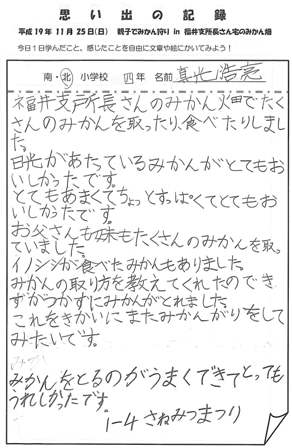 思い出の記録
平成19年11月25日(日) 親子でみかん狩り in 福井支所長さん宅のみかん畑
今日1日学んだこと、感じたことを自由に文章や絵にかいてみよう!
南・北 小学校 四年 名前 真光浩亮
福井支所長さんのみかん畑でたく
さんのみかんを取ったり、食べたりしまし
た。
日光があたっているみかんがとてもお
いしかったです。
とてもあまくてちょっとすっぱくてとてもお
いしかったです。
お父さんも妹もたくさんのみかんを取っ
ていました。
イノシシが食べたみかんもありました。
みかんの取り方を教えてくれたのでき
ずがつかずにみかんがとれました。
これをきかいにまたみかんがりをして
みたいです。
みかんをとるのがうまくできてとっても
うれしかったです。
1-4 さねみつまつり